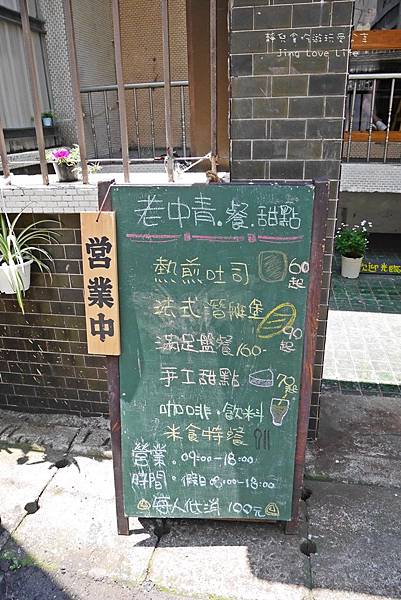 靜兒貪吃遊玩愛分享
Jing Love Life
老中青.餐.甜點
營業中
熱煎吐司 60起
法式潛艇堡 90起
滿足盤餐160-
手工甜點 70起
咖啡.飲料
米食特餐
營業.09:00-18:00
時間.假日08:00-18:00
每人低消 100元